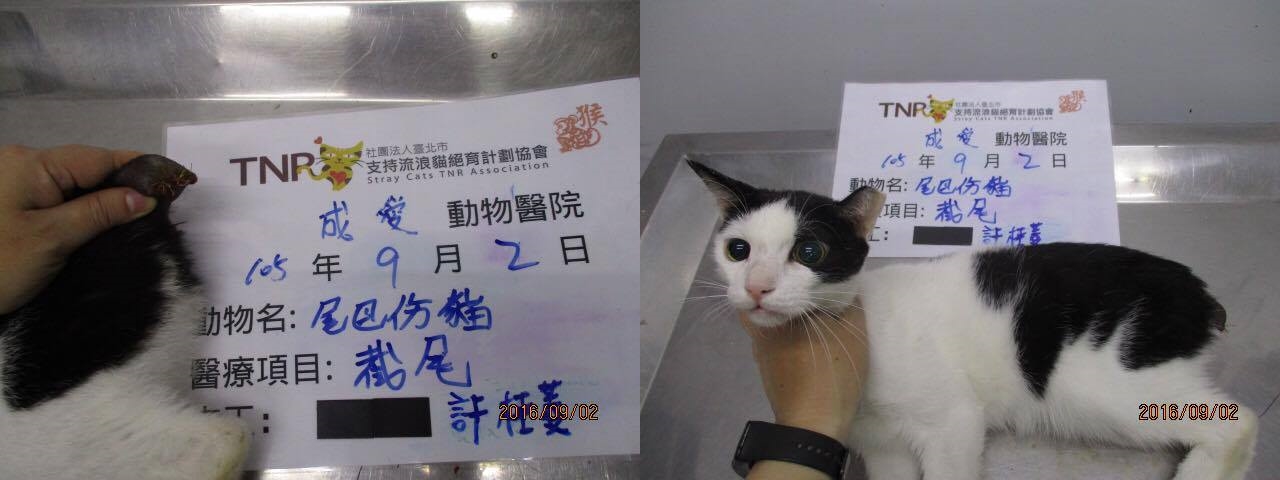 TNR
社團法人臺北市
支持流浪貓絕育計劃協會
Stray Cats TNR Association
猴
成愛 動物醫院
105 年 9 月 2 日
動物名: 尾巴傷貓
醫療項目: 截尾
工:
2016/09/02
TNR
社團法人臺北市
支持流浪貓絕育計劃協會
Stray Cats TNR Association
成愛 動物醫院
105 年 9 月 2 日
動物名: 尾巴傷貓
項目: 截尾
工:
2016/09/02